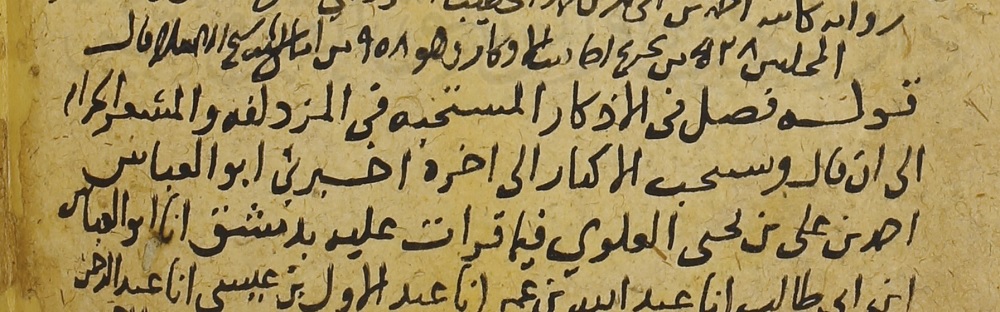 رواية كاتبه
المجلس ٤٣٨ من تخريج احاديث الاذكار وهو ٩٥٨ من امالي شيخ الاسلام قال
قوله فصل في الاذكار المستحبه في المزدلفه والمشعر الحرام
الى ان قال ويستحب الاكثار الى اخره اخبرني ابو العباس
احمد بن علي بن يحيى العلوي فيما قرات عليه بدمشق انا ابو العباس
ابن ابي طالب انا عبد الله بن عمر انا عبد الاول بن عيسى انا عبد الرحمن